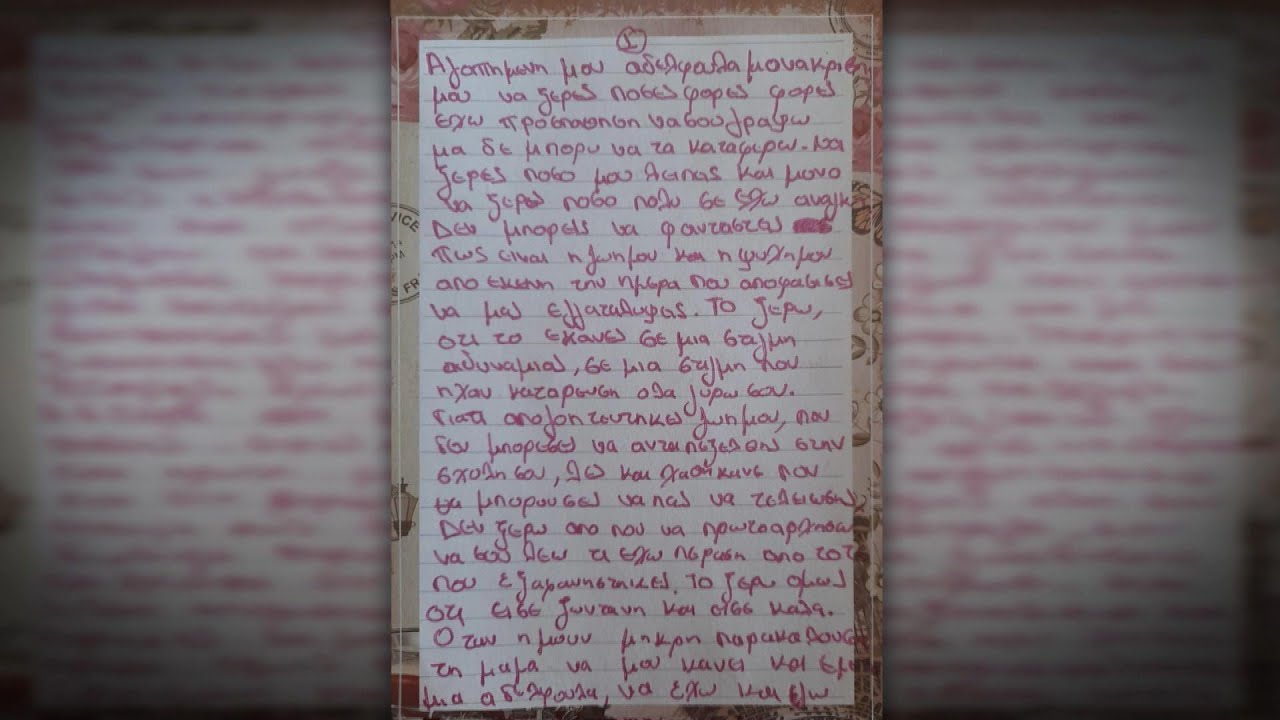 ①
Αγαπημενη μου αδελφαλα μονακριβη
μου να ξερες ποσες φορες φορες
εχω προσπαθηση να σου γραψω
μα δε μπορω να τα καταφερω. Να
ξερες ποσο μου λειπεις και μονο
να ξερες ποσο πολυ σε εχω αναγκ
Δεν μπορεις να φανταστεις
πως ειναι η ζωη μου και η ψυχη μου
απο εκεινη την ημερα που αποφασισες
να μας εγκαταληψεις. Το ξερω,
οτι το εκανες σε μια στιγμη
αδυναμιας, σε μια στιγμη που
ηχαν καταρευση ολα γυρω σου.
Γιατι απογοητευτηκες ζωη μου, που
δεν μπορεσες να ανταπεξελθης στην
σχολη σου, και που
θα μπορουσες να πας να τελειωσης
Δεν ξερω απο που να πρωτοαρχησω
να σου λεω τι εχω περαση απο τοτ
που εξαφανηστηκες. Το ξερω ομως
οτι εισε ζωντανη και εισε καλα.
Οταν ημουν μηκρη παρακαλουσ
τη μαμα να μου κανει και εμε
μια αδελφουλα, να εχω και εγω
VICE
FR